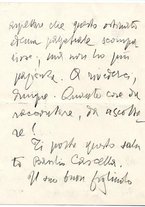 aspetto che questo ostinato
scompa
rire, ma non ho più
pazienza. A vederci,
dunque. Quante cose da
raccontare, da ascolta
re!
Ti porto questo salu
to Basilio Cascella.
Il tuo buon figliuolo